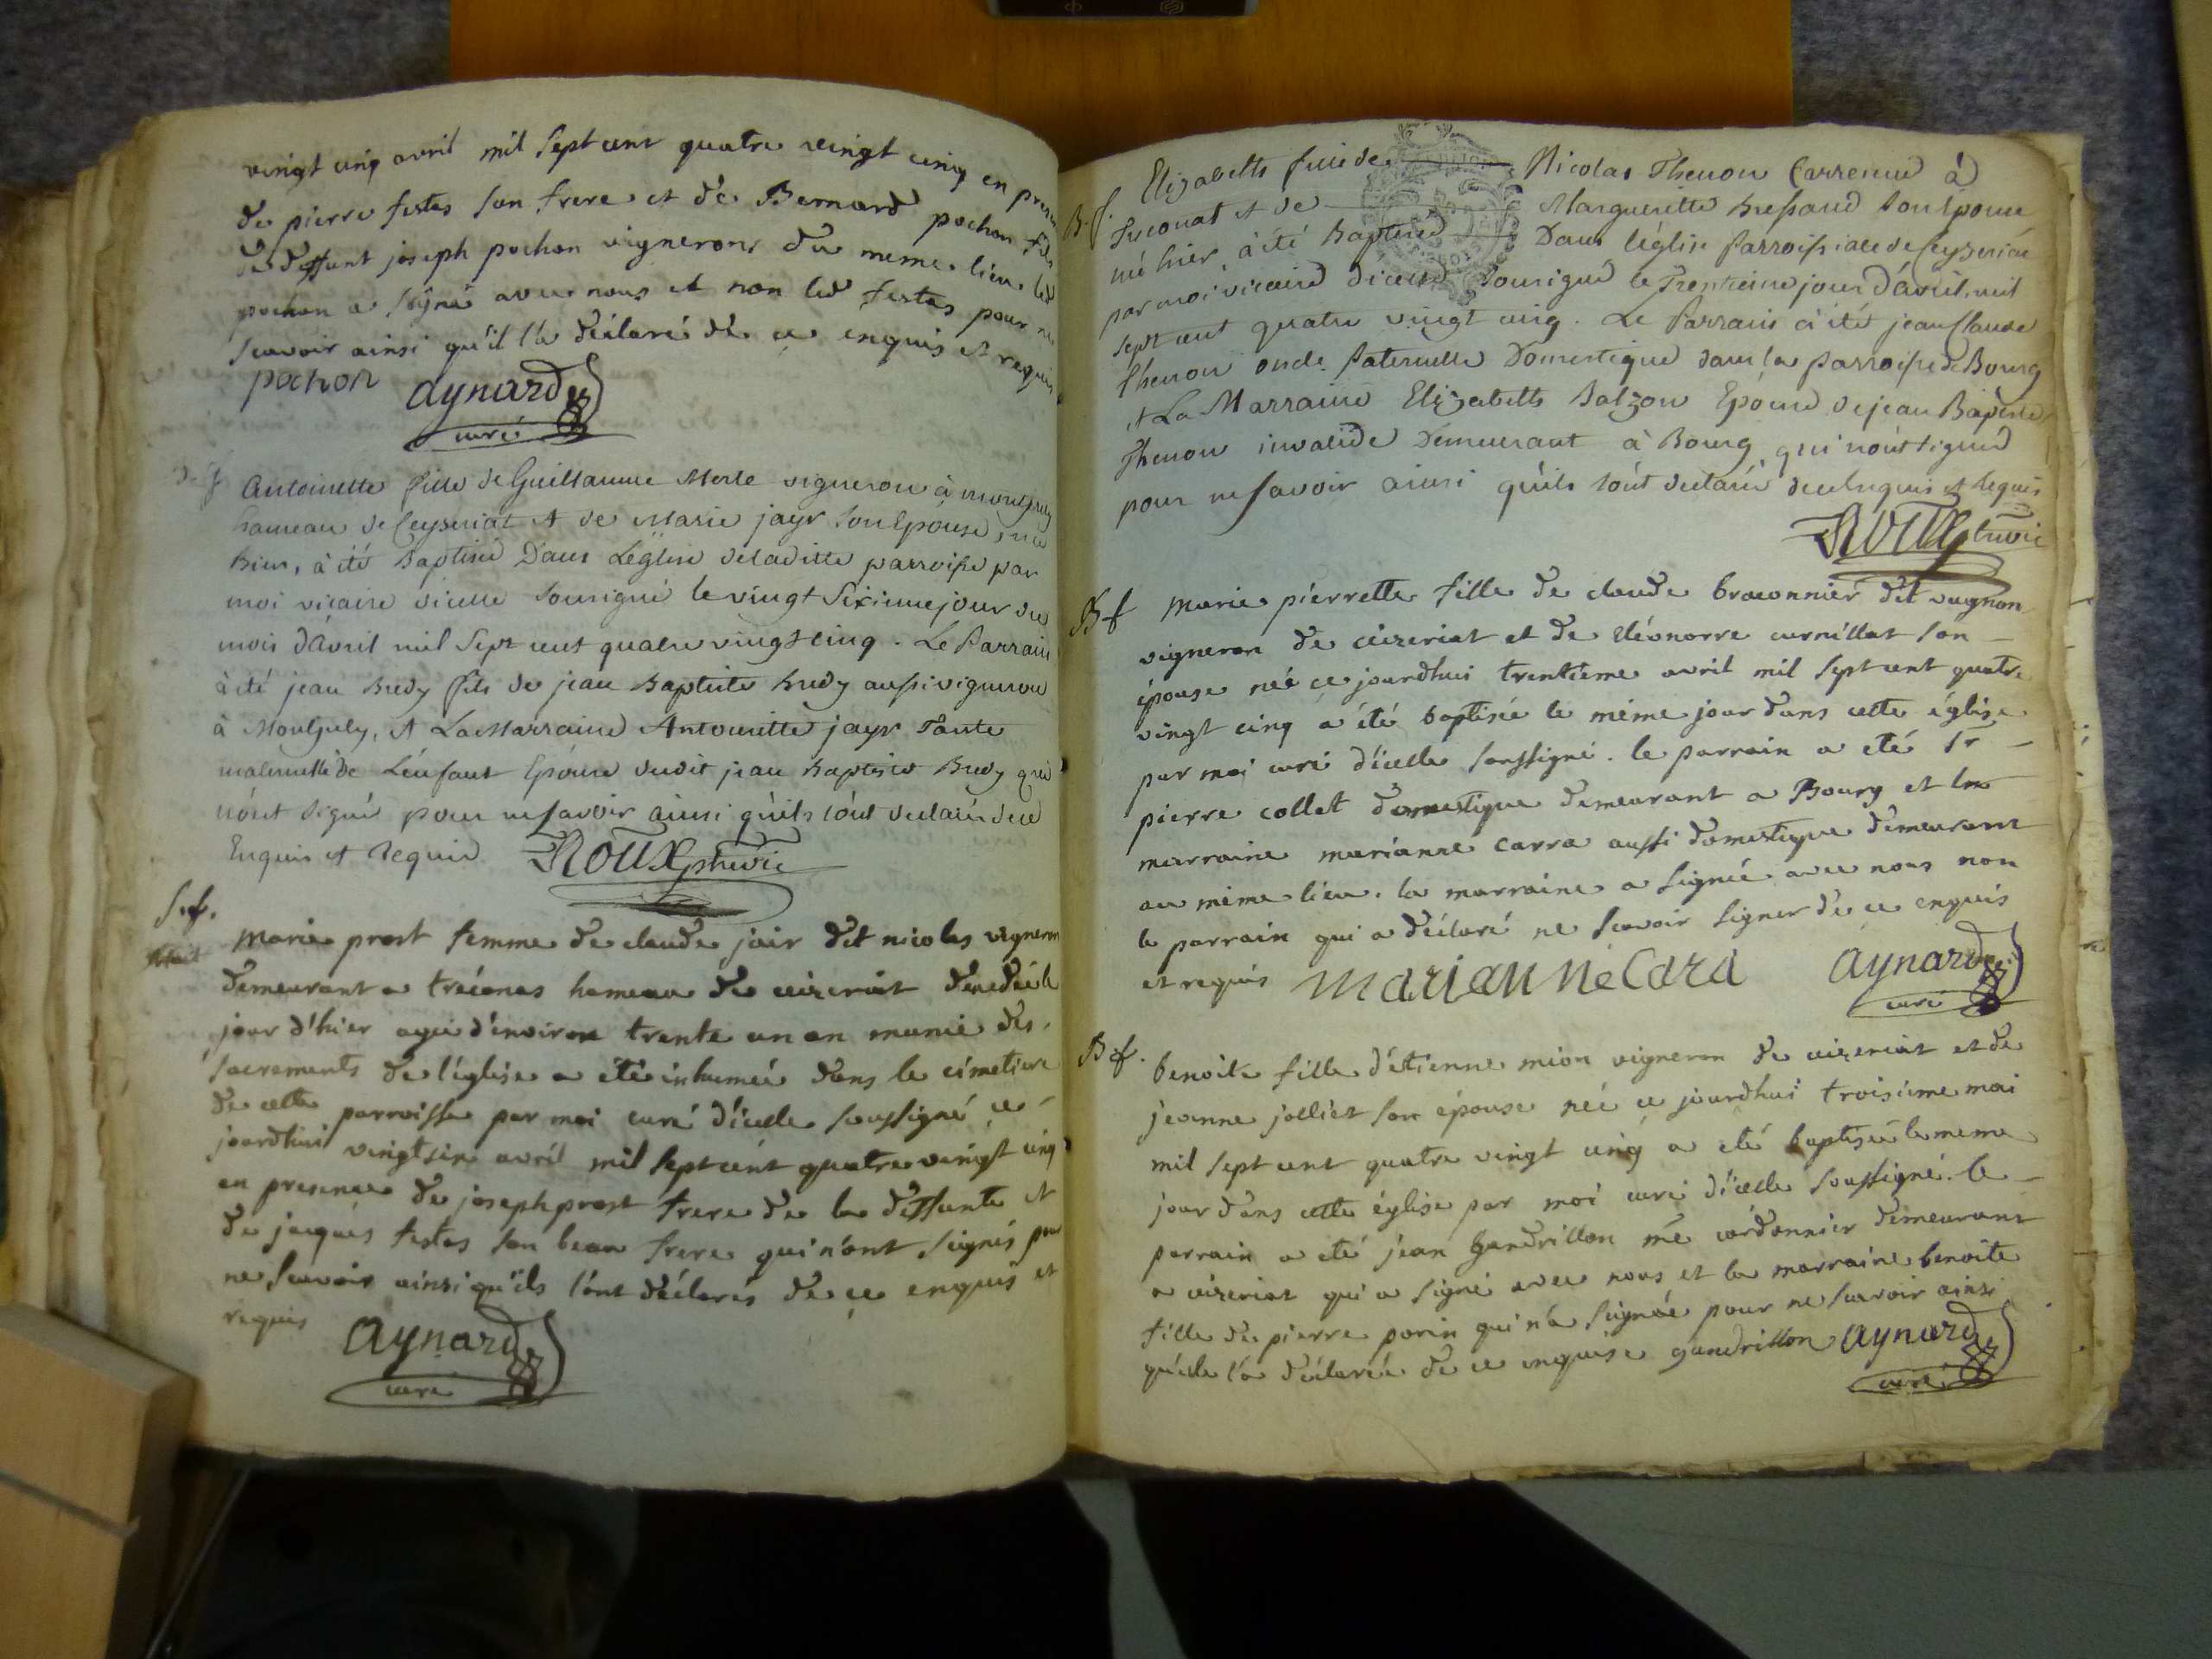 vingt cinq avril mil sept cent quatre vingt cinq en presen
de pierre festas son frere et de Bernard pochon fils
de deffunt joseph pochon vignerons du meme lieu led
pochon a signé avec nous et non led festas pour ne
scavoir ainsi qu'il l'a déclaré de ce enquis et requis
pochon aynard
curé
Antoinette fille de Guillaume Merle vigneron à montjuly
hameau de Ceyseriat et de Marie jayr son Epouse, née
hier, à été Baptisée Dans L'eglise de laditte parroisse par
moi vicaire d'icelle soussigné le vingt sixiemejour du
mois d'avril mil sept cent quatre vingt cinq. Le Parrain
à été jean Bredy fils de jean Baptiste Bredy aussi vigneron
à Montjuly, et La Marraine Antoinette jayr Tante
maternelle de L'enfant Epouse dudit jean Baptiste Bredy qui
n'ont signé pour ne savoir ainsi qu'ils l'ont declaré de ce
Enquis et Requis ROUX ptre vic
S. f.
Marie prost femme de claude jair dit nicolas vigneron
demeurant a tréconas hameau de ceizeriat décédée le
jour d'hier agée d'environ trente un an munie des
sacrements de l'église a été inhumée dans le cimetiere
de cette parroisse par moi curé d'icelle soussigné ce
jourdhui vingt six avril mil sept cent quatre vingt cinq
en presence de joseph prost frere de la deffunte et
de jacques festas son beau frere qui n'ont signés pour
ne scavoir ainsi qu'ils l'ont déclarés de ce enquis et
requis aynard
curé
B. f. Elizabeth fille de Nicolas Thenon Carrenné à
juconat et de Margueritte Bressand son Epouse
née hier à été Baptisée Dans l'église Parroissiale de Ceyseriat
par moi vicaire d'icelle soussigné le Trentieme jour d'avril mil
sept cent quatre vingt cinq. Le Parrain à été jean Claude
Thenon oncle Paternelle Domestique dans la Parroisse de Bourg
et La Marraine Elizabeth Balzon Epouse de jean Baptiste
Thenon invalide Demeurant à Bourg qui n'ont signé
pour ne savoir ainsi qu'ils l'ont declaré de ce Enquis et Requis
ROUX ptre vic
B f Marie pierrette fille de claude braconnier dit vugnon
vigneron de ceizeriat et de eléonorre curnillat son
épouse née ce jourdhui trentieme avril mil sept cent quatre
vingt cinq a été baptisée le même jour dans cette église
par moi curé d'icelle soussigné. le parrain a eté Sr
pierre collet domestique demeurant a Bourg et la
marraine marianne carra aussi domestique demeurant
au même lieu. la marraine a signée avec nous non
le parrain qui a déclaré ne scavoir signer de ce enquis
et requis Marianne Cara aynard
curé
B f. benoite fille d'étienne mion vigneron de ceizeriat et de
jeanne jolliet son épouse née ce jourdhui troisieme mai
mil sept cent quatre vingt cinq a eté baptisée le meme
jour dans cette église par moi curé d'icelle soussigné. le
parrain a eté jean gandrillon me cordonnier demeurant
a ceizeriat qui a signé avec nous et la marraine benoite
fille de pierre porin qui n'a signée pour ne scavoir ainsi
qu'elle l'a déclarée de ce enquise gandrillon aynard
curé